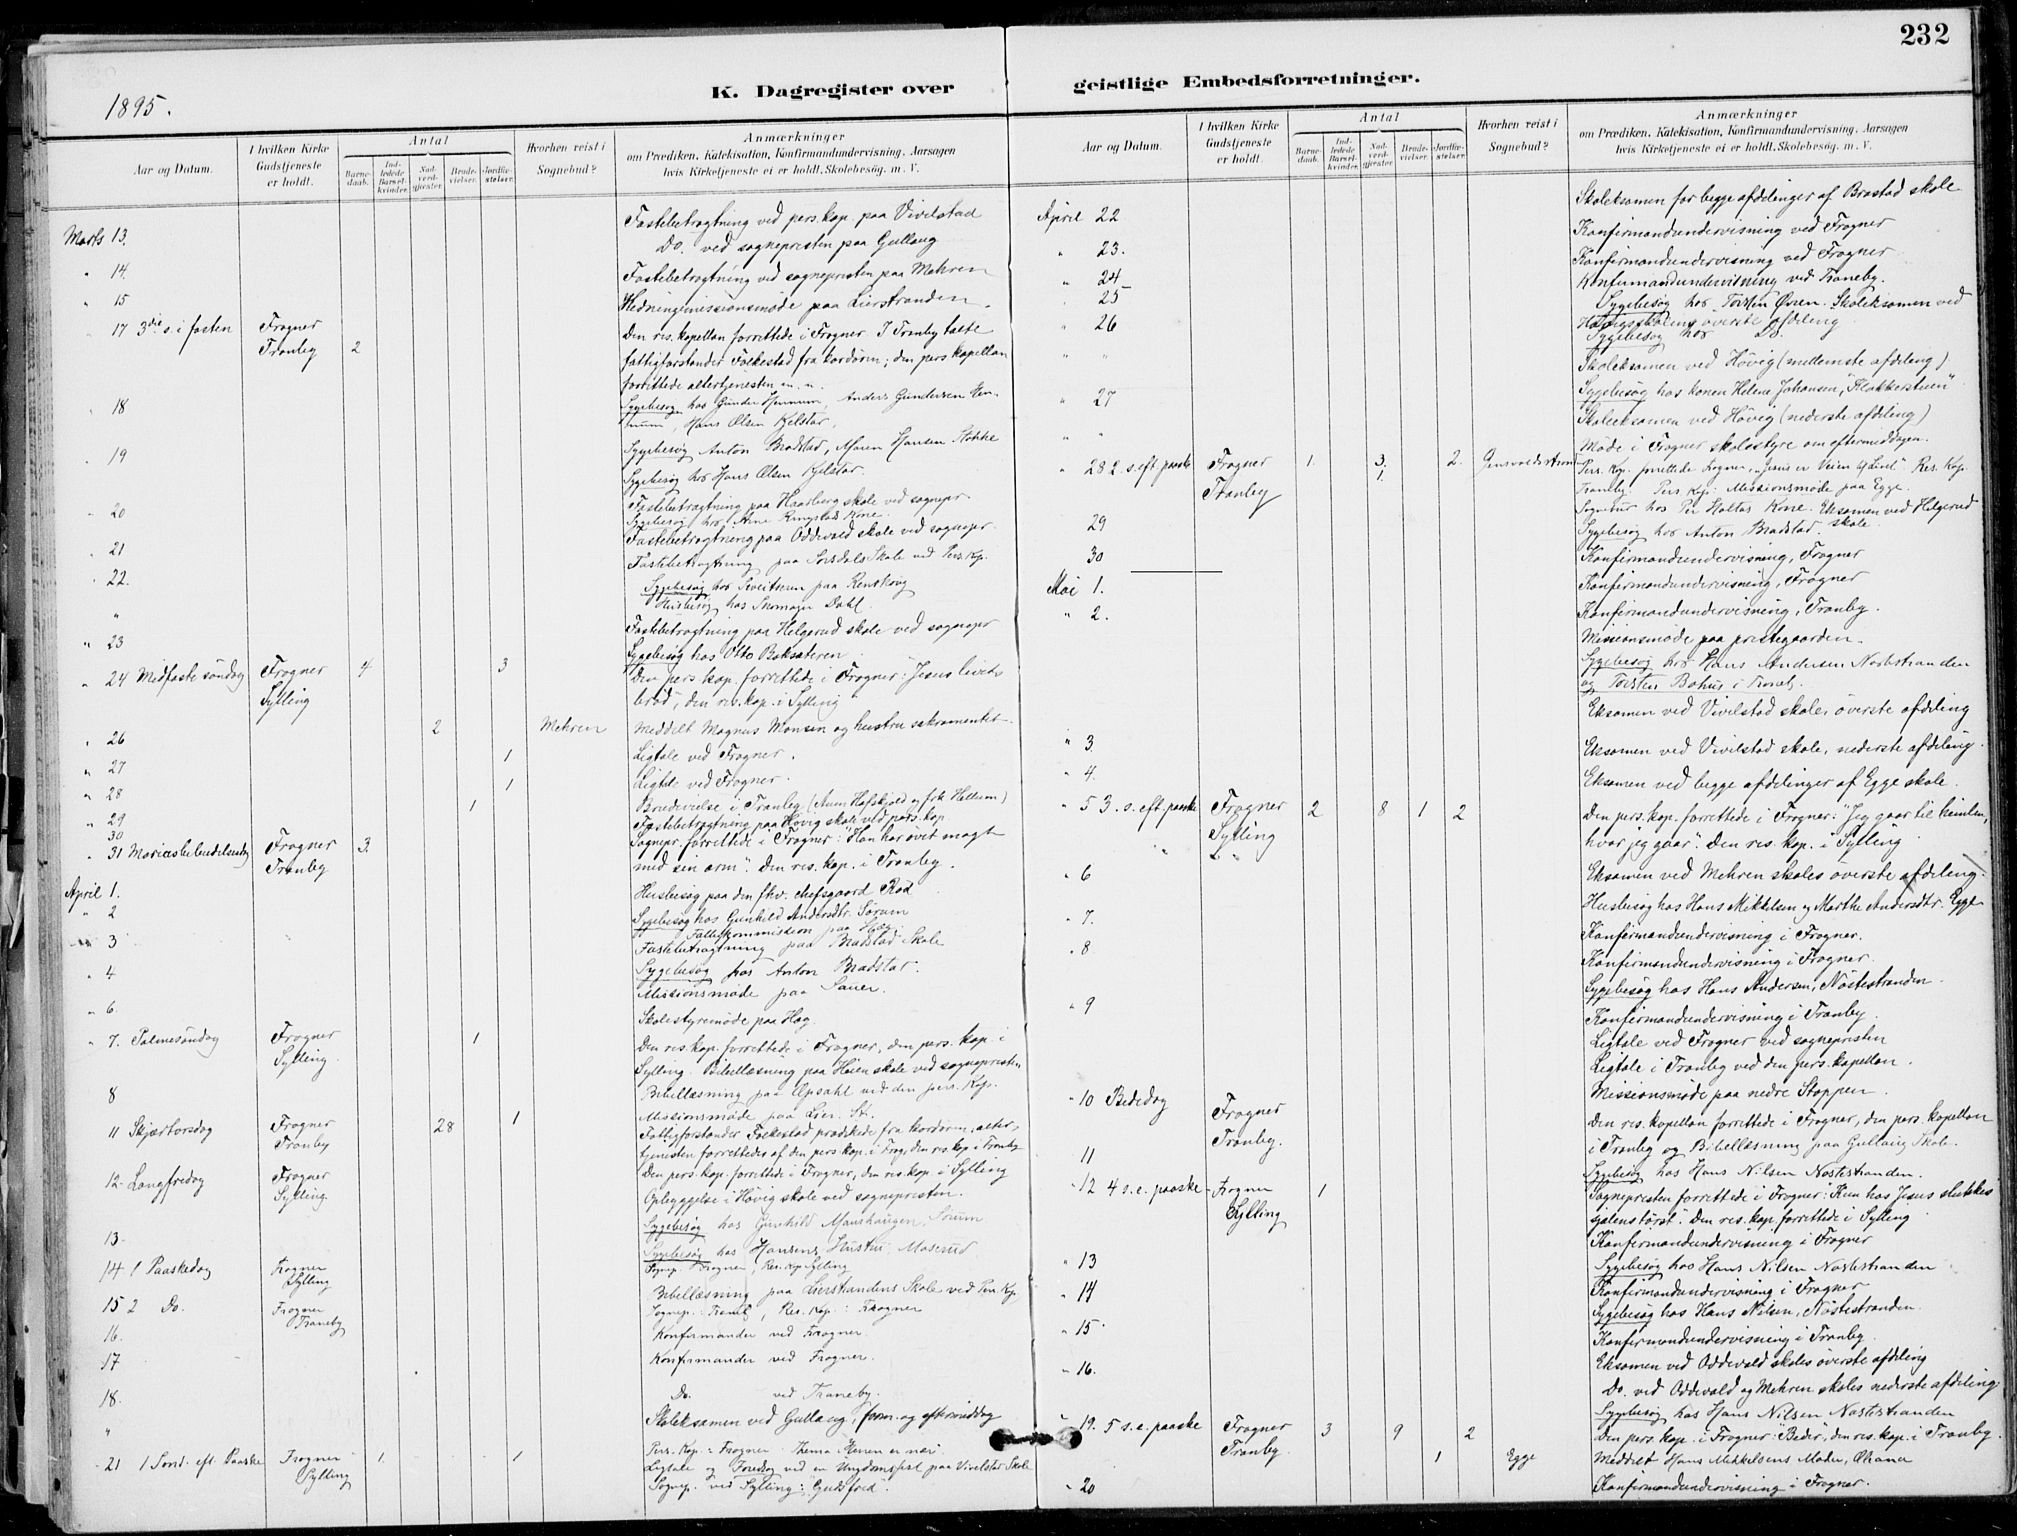 232
K. Dagregister over
geistlige Embedsforretninger.
1895.
Aar og Datum.
I hvilken Kirke Gudstjeneste er holdt.
Antal
Barne-daab.
Ind-ledede Barsel-kvinder.
Nad-verd-gjester.
Brude-vielser.
Jordfæ-stelser.
Hvorhen reist i Sognebud?
Anmærkninger
om Prædiken, Katekisation, Konfirmandundervisning, Aarsagen
hvis Kirketjeneste ei er holdt, Skolebesøg. m. V.
Marts 13. Fastebetragtning ved pers. kap. paa Vivelstad
Do. ved sognepresten paa Gullaug
" 14. Fastebetragtning ved sognepresten paa Mehren
" 15 Hedningemissionsmøde paa Lierstranden.
" 17 3die s. i fasten Frogner Den res. kapellan forrettede i Frogner I Tranby talte
Tranby 2 fattigforstander Folkestad fra kordøren; den pers kapellan
forrettede altertjenesten m. m.
" 18 Sygebesøg hos Gunder Hennum, Anders Gundersen Hen-
num, Hans Olsen Kjelstad,
" 19 Sygebesøg Anton Bradstad, Maren Hansen Stokke
Sygebesøg hos Hans Olsen Kjelstad.
" 20 Fastebetragtning paa Haarberg skole ved sognepr.
Sygebesøg hos Arne Ringstads Kone.
" 21 Fastebetragtning paa Oddevald skole ved sognepr.
" 22. Fastebetragtning paa Sørsdals Skole ved Pers. Kp.
Sygebesøg hos paa Renskoug
" Husbesøg hos Dahl.
" 23 Fastebetragtning paa Helgerud skole ved sognepr
Sygebesøg hos Otto Baksæteren
" 24 Midfaste søndag Frogner 4 3 Den pers kap. forrettede i Frogner: Jesus livets
Sylling brød", den res. kap. i Sylling
" 26 2 Mehren Meddelt Magnus Monsen og hustru sakramentet.
" 27 1 Ligtale ved Frogner.
" 28 1 Ligtale ved Frogner.
" 29 1 Brudevielse i Tranby (Aum Hafskjold og frk Hellum)
30 Fastebetragtning paa Høvig skole ved pers. kap.
" 31 Mariæ bebudelsesdag Frogner 3. Sognepr. forrettede i Frogner: "Han har øvet magt
Tranby med sin arm". Den res. kap. i Tranby.
April 1. Husbesøg paa den fhv. chefsgaard Rød
" 2 Sygebesøg hos Gunhild Andersdtr. Sørum
Fattigkommission paa Hæg
" 3 Fastebetragtning paa Bradstad Skole
" 4 Sygebesøg hos Anton Bradstad.
Missionsmøde paa Sauer.
" 6. Skolestyremøde paa Hæg
" 7. Palmesøndag Frogner 1 Den res. kap. forrettede i Frogner, den pers. kap. i
Sylling. Sylling. Bibellæsning paa Høien skole ved sognepresten
8 Bibellæsning paa Opsahl ved den pers. Kp.
1 Missionsmøde paa Lier. St.
11 Skjærtorsdag Frogner 28 Fattigforstander Folkestad prædikede fra kordøren, alter-
Tranby tjenesten forrettedes af den pers kap. i Frog; den res. kap i Tranby
12. Langfredag Frogner Den pers. kap. forrettede i Frogner, den res. kap. i Sylling
Sylling. Opbyggelse i Høvig skole ved sognepresten.
Sygebesøg hos Gunhild Maushaugen, Sørum
13. Sygebesøg hos Hansens Hustru, Moserud.
14 1 Paaskedag Frogner Sogep. Frogner, Res. Kp Sylling
Sylling Bibellæsning paa Lierstrandens Skole ved Per. Kp.
15 2 Do. Frogner Sognep.: Tranby, Res. Kap.: Frogner
Traneby
16. Konfirmander ved Frogner.
17 Konfirmander ved Frogner.
18. Do. ved Traneby.
" Skoleksamen ved Gullaug, form. og eftermiddag
Pers. Kap: Frogner Thema Herren er nær
" 21 1 Sønd. eft. Paaske Frogner 1 1 Ligtale og Foredrag ved en Ungdomsfest paa Vivelstad Skole
Sylling Sognep. ved Sylling: "Gudsfred".
Aar og Datum.
I hvilken Kirke Gudstjeneste er holdt.
Antal
Barne-daab.
Ind-ledede Barsel-kvinder.
Nad-verd-gjester.
Brude-vielser.
Jordfæ-stelser.
Hvorhen reist i Sognebud?
Anmærkninger
om Prædiken, Katekisation, Konfirmandundervisning, Aarsagen
hvis Kirketjeneste ei er holdt, Skolebesøg. m. V.
April 22 Skoleksamen for begge afdelinger af Brastad skole
" 23. Konfirmandundervisning ved Frogner
" 24 Konfirmandundervisning ved Frogner
" 25 Konfirmandundervisning ved Traneby.
Sygebesøg hos Torsten Øvren. Skoleksamen ved
" 26 øverste afdeling
Sygebesøg hos Do.
" " Skoleksamen ved Høvig (mellemste afdeling)
" 27 Sygebesøg hos konen Helene Johansen, "Flakkerstuen"
Skoleksamen ved Høvig (nederste afdeling)
" " Møde i Frogner skolestyre om eftermiddagen.
" 28 2. s. eft. paaske Frogner 1. 3. 2. Pers. Kap. forrettede Frogner, "Jesus er Veien til Livet" Res. Kap.
Tranby 1. Tranby. Pers. Kap. Missionsmøde paa Egge.
Sognebud hos Per Holtas Kone. Eksamen ved Helgerud
29 Sygebesøg hos Anton Bradstad. skole
30 Konfirmandundervisning, Frogner
Mai 1. Konfirmandundervisning, Frogner
" 2. Konfirmandundervisning, Tranby.
Missionsmøde paa prestegaarden.
Sygebesøg hos Hans Andersen Nøstestranden
og Torsten Bohus i Traneb.
Eksamen ved Vivelstad skoles øverste afdeling
" 3. Eksamen ved Vivelstad skole, nederste afdeling.
" 4. Eksamen ved begge afdelinger af Egge skole.
" 5 3. s. eft. paaske Frogner 2 8 1 2 Den pers. kap. forrettede i Frogner: "Jeg gaar til himlen,
Sylling hvor jeg gaar". Den res. kap. i Sylling
" 6 Eksamen ved Mehren skoles øverste afdeling.
" 7. Husbesøg hos Hans Mikkelsen og Marthe Andersdtr. Egge
Konfirmandundervisning i Frogner.
" 8 Konfirmandundervisning i Frogner.
Sygebesøg hos Hans Andersen, Nøstestranden.
" 9 Konfirmandundervisning i Tranby.
Ligtale ved Frogner ved sognepresten
Ligtale i Tranby ved den pers. kapellan.
Missionsmøde paa nedre Stoppen.
" 10 Bededag Frogner Den res. kapellan forrettede i Frogner, den pers. kapellan
Tranby. i Tranby og Bibellæsning paa Gullaug Skole.
11 Sygebesøg hos Hans Nilsen Nøstestranden.
" 12 4 s. e. paaske Frogner 1 Sognepresten forrettede i Frogner: "Kun hos Jesus slukkes
Sylling sjælens tørst". Den res. kap. forrettede i Sylling
Konfirmandundervisning i Frogner
" 13 Sygebesøg hos Hans Nilsen Nøstestranden
" 14 Konfirmandundervisning i Frogner
Sygebesøg hos Hans Nilsen, Nøstestranden.
" 15 Konfirmandundervisning i Tranby.
Eksamen ved Oddevald skoles øverste afdeling
" 16. Do. ved Oddevald og Mehren skoles nederste afdeling
Sygebesøg hos Hans Nilsen Nøstestranden
" 19. 5 s. e. paaske Frogner 3 9 2 Den pers. kap. i Frogner: "Beder", den res. kap. i Tranby.
Tranby. 1 Egge Meddelt Hans Mikkelsens Moder,
" 20 Konfirmandundervisning i Frogner.